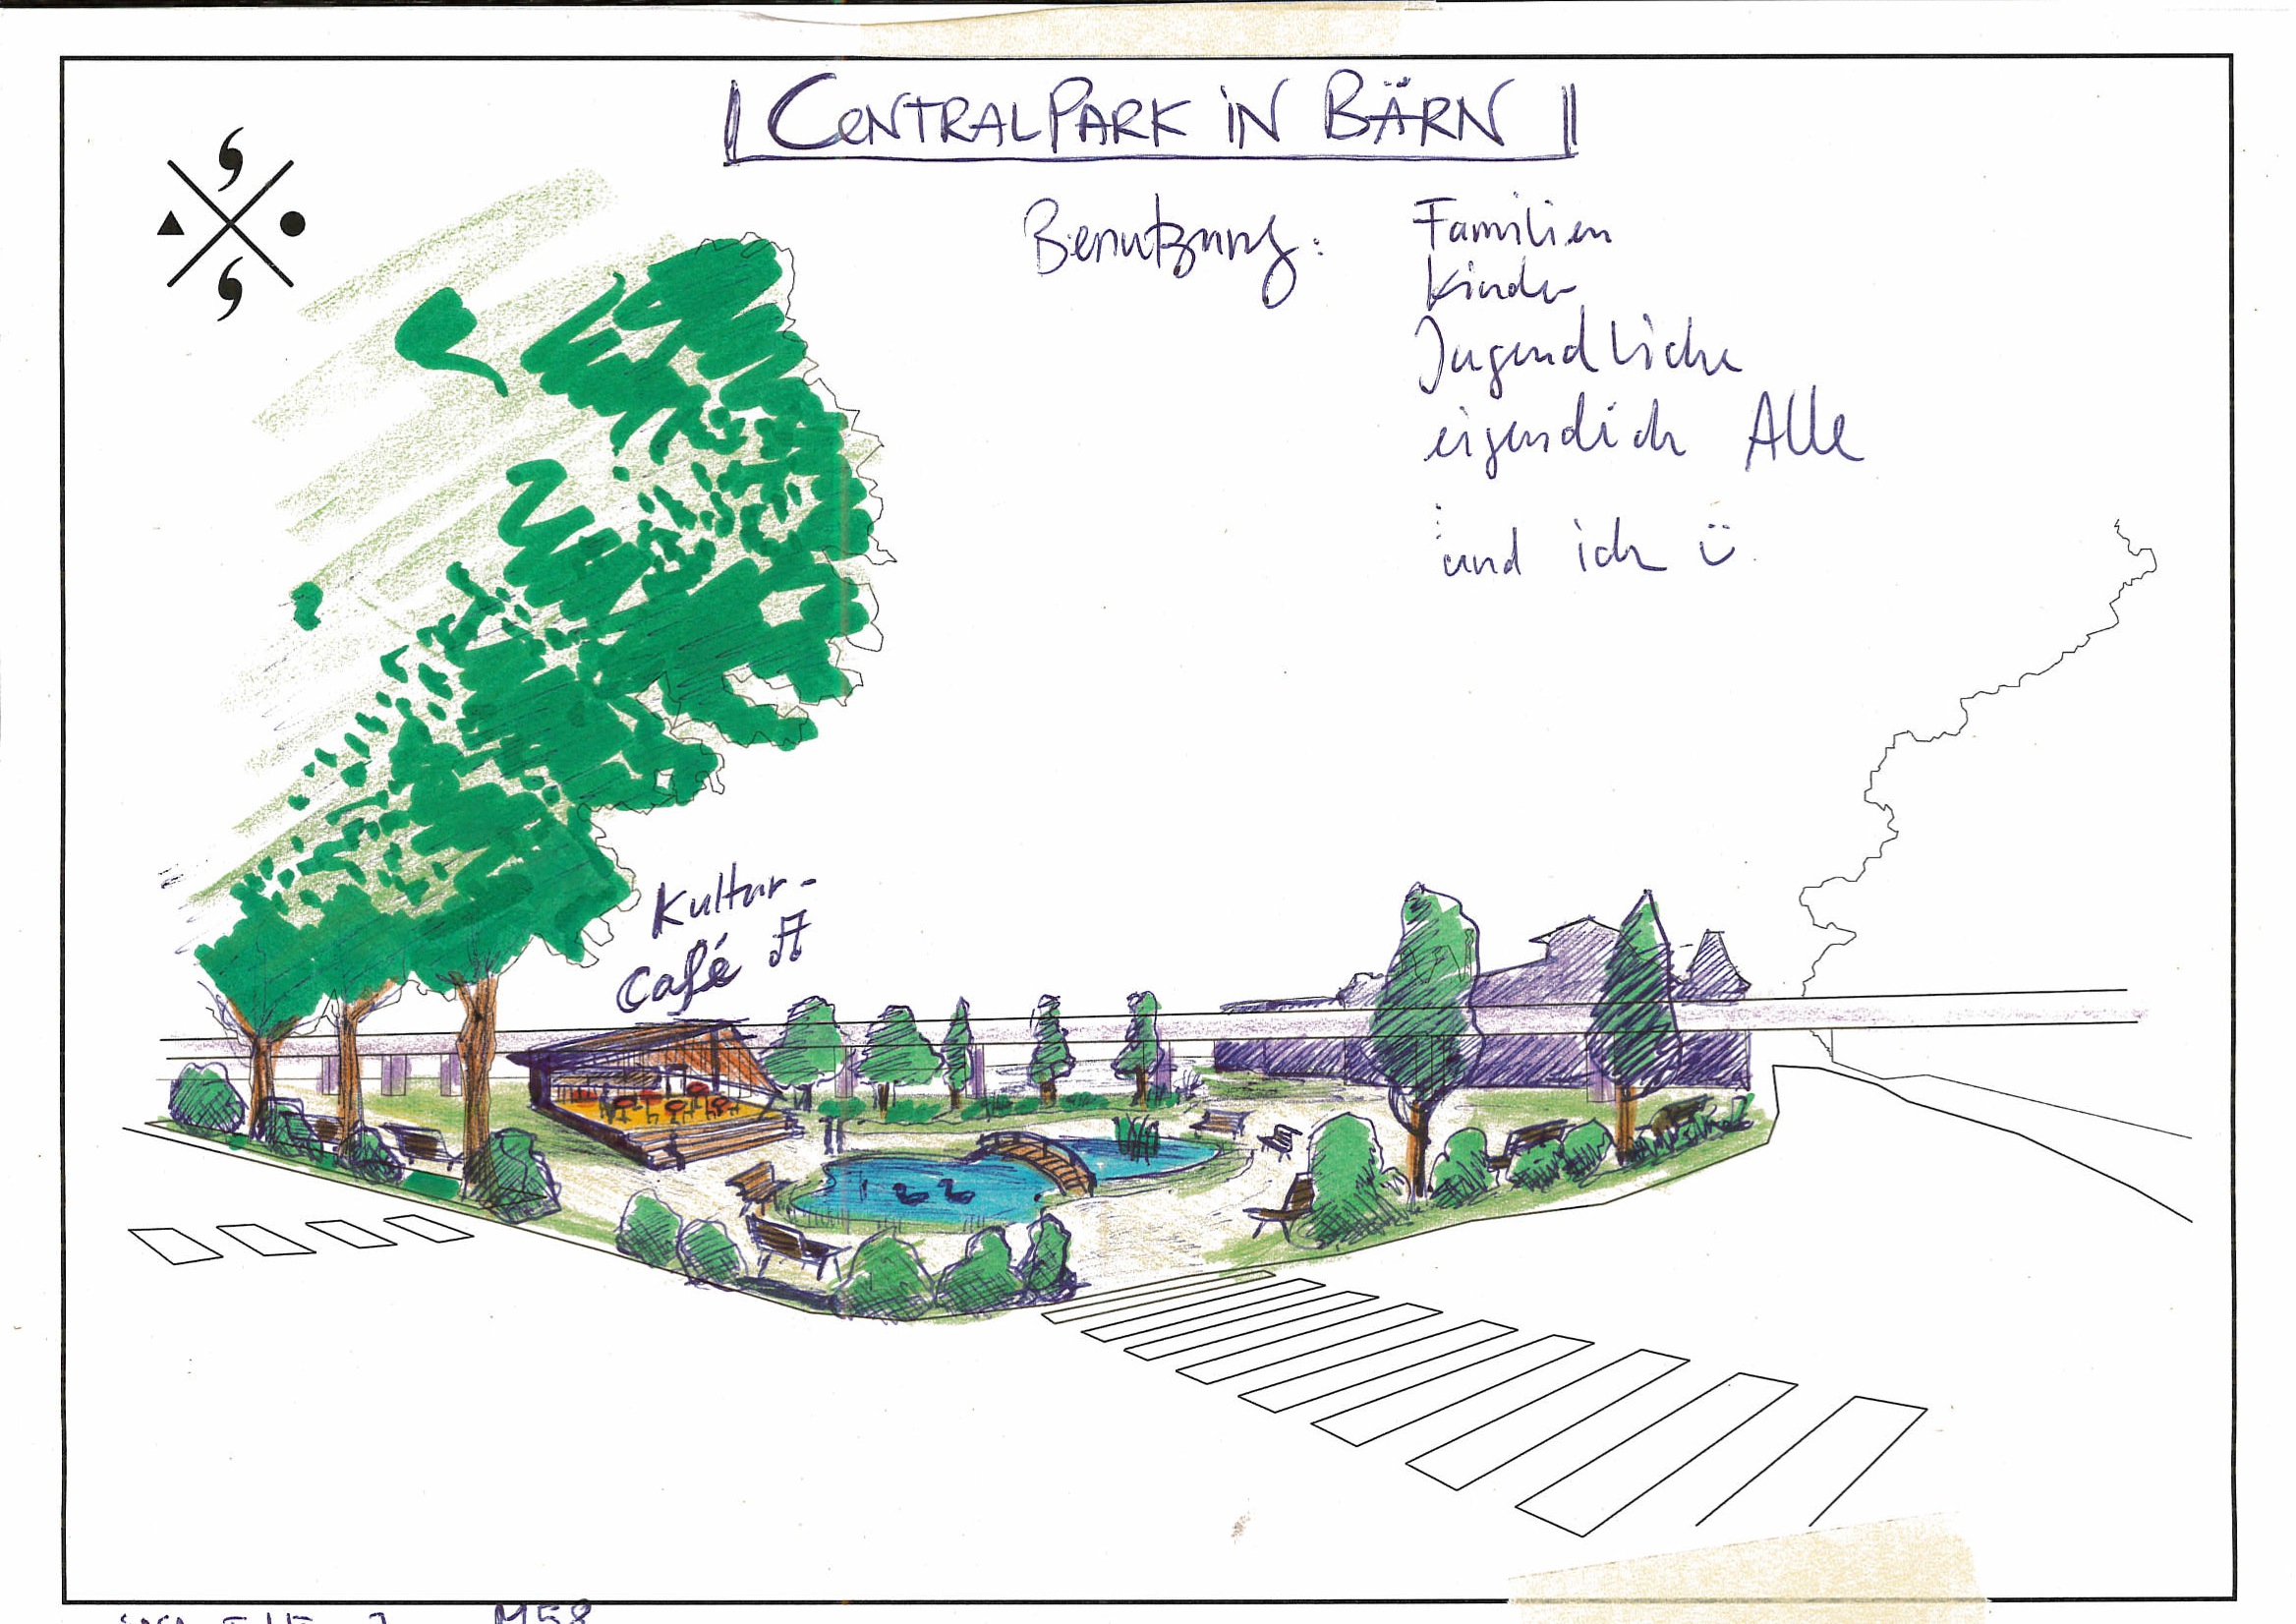 CENTRALPARK IN BÄRN
Benutzung: Familien
Kinder
Jugendliche
eigendlich Alle
und ich
Kultur-
Café
M58